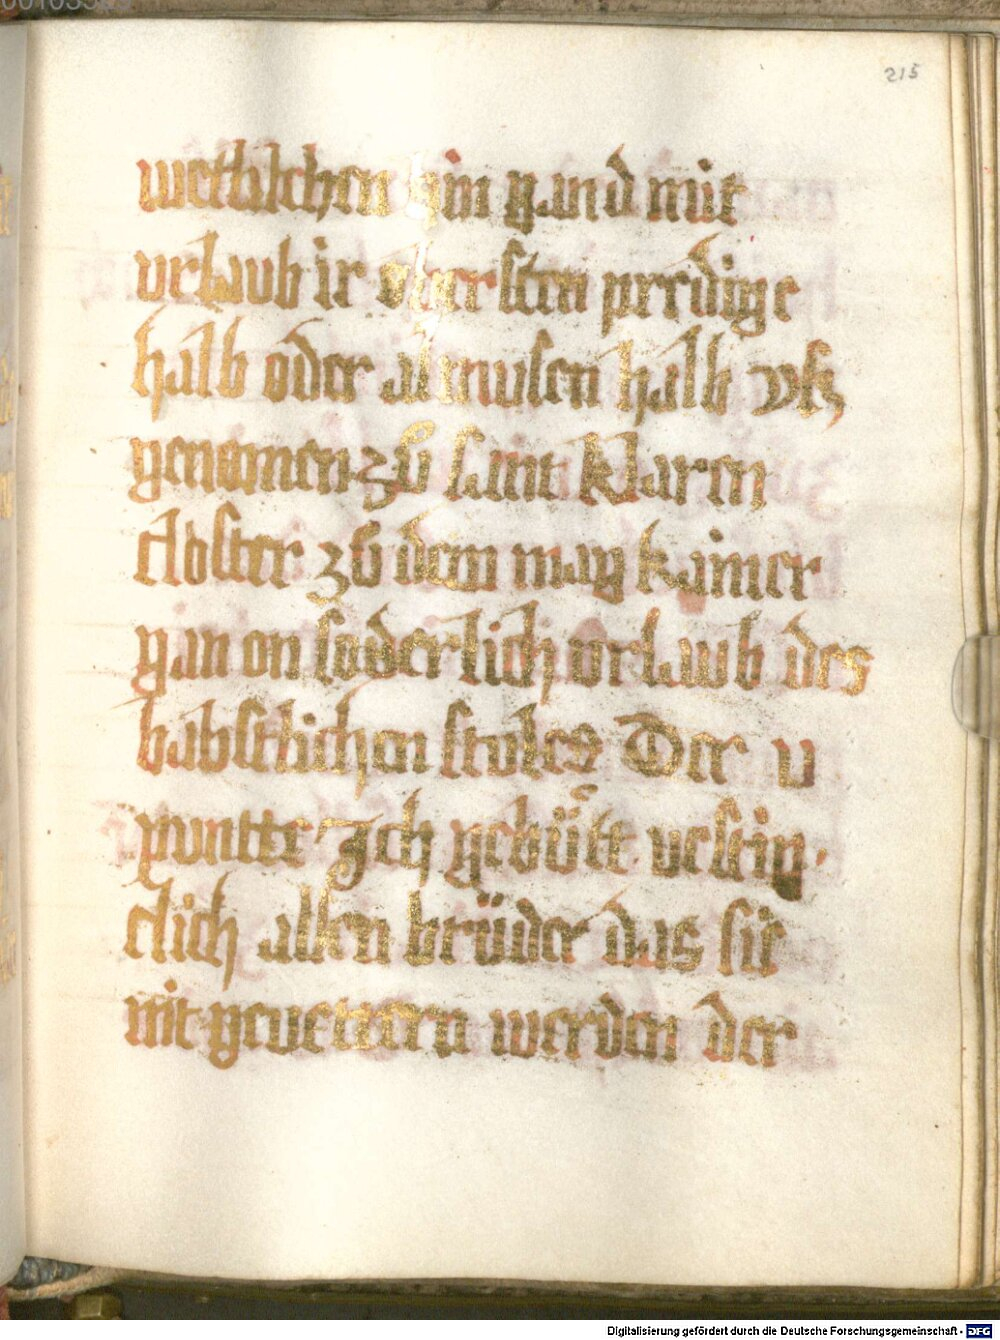 215
weltlichen hin gand mit
vrlaub ir obersten predige
halb oder almusen halb vsz
genomen zů sant klaren
closter zů dem mag kainer
gan on sŏderlich vrlaub des
babstlichen stules Der v
puntte Jch gebůtt vestig
clich allen brüder das sie
nit gevettern werden der
Digitalisierung gefördert durch die Deutsche Forschungsgemeinschaft - DFG